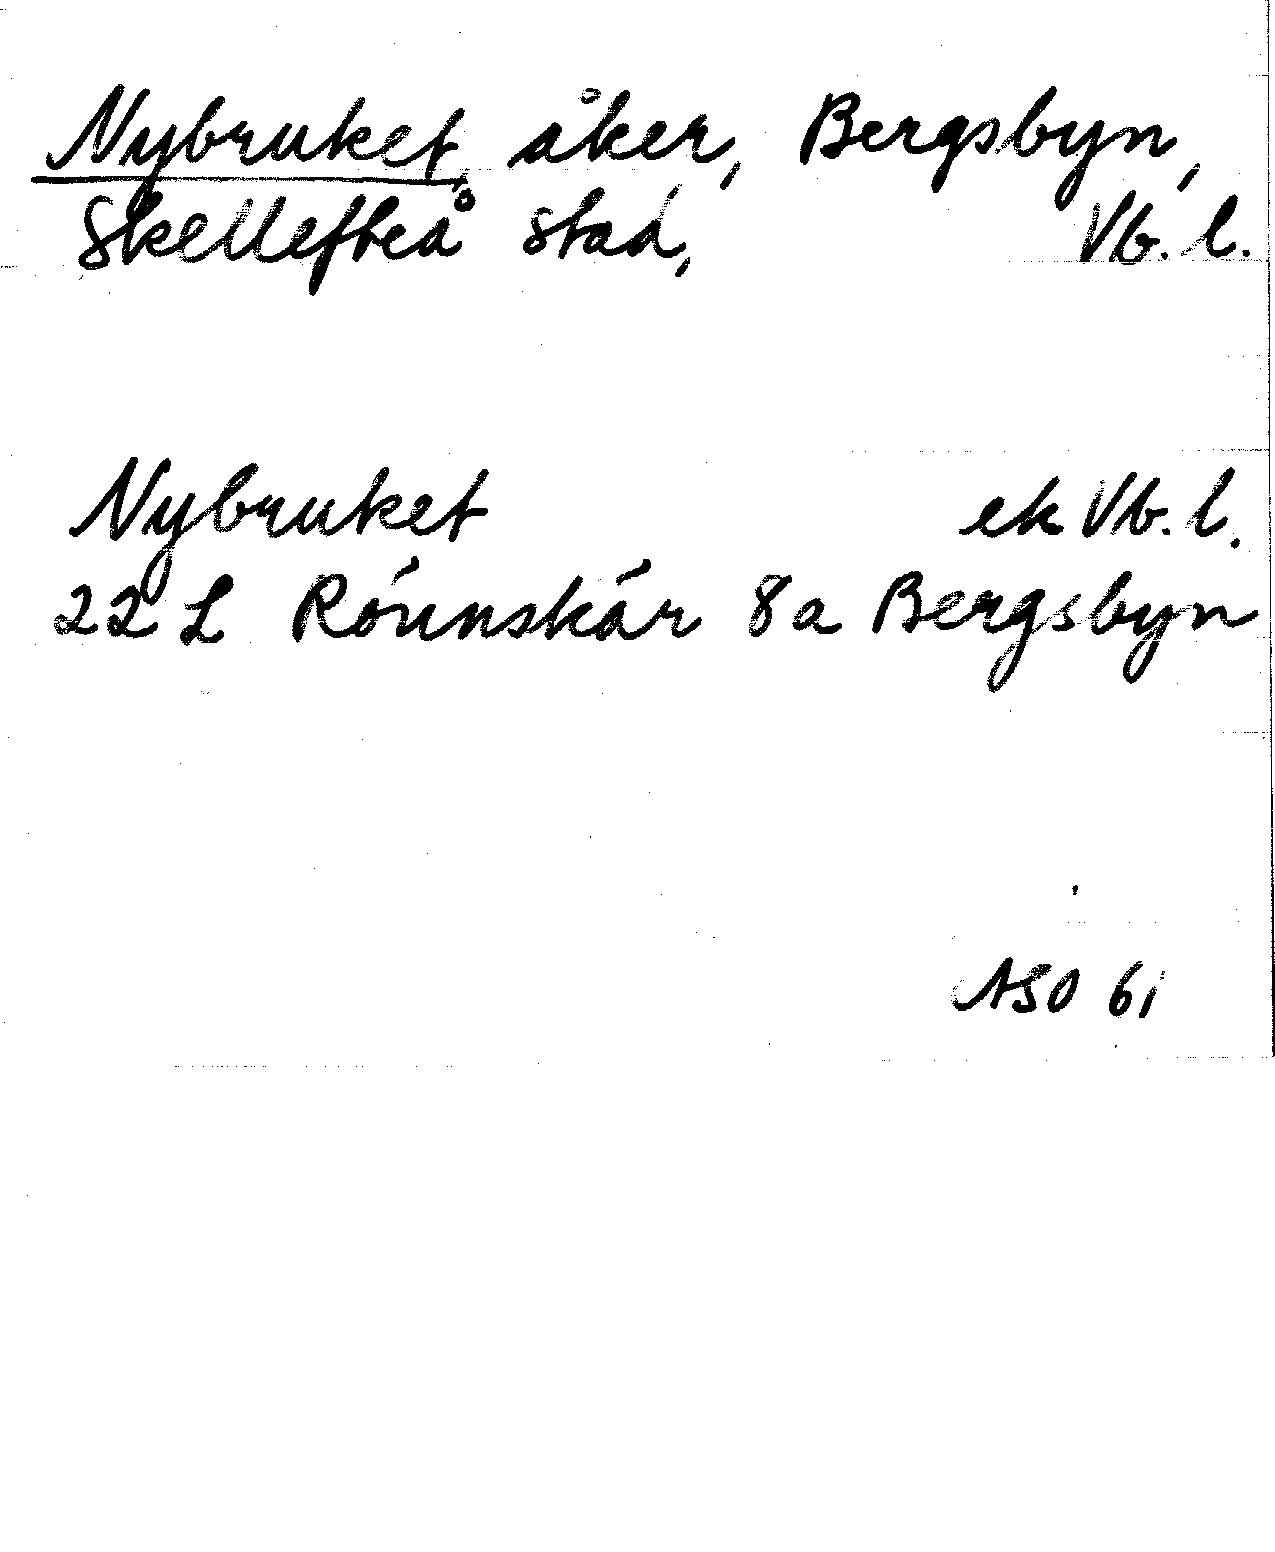 Nybruket, åker, Bergsbyn,
Skellefteå stad, Vb. l.
Nybruket ek Vb. l.
22 L Rönnskär 8a Bergsbyn
ASO 61